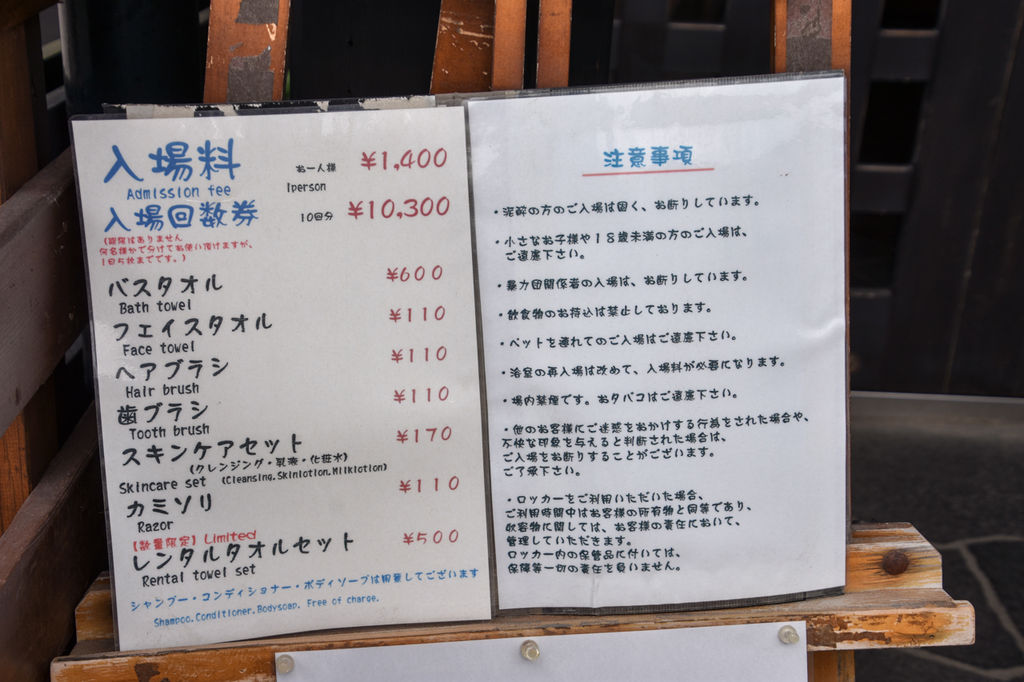 入場料 お一人様 ¥1,400
Admission fee 1person
入場回数券 10回分 ¥10,300
(期限はありません
何名様かで分けてお使い頂けますが、
1回5枚までです。)
バスタオル ¥600
Bath towel
フェイスタオル ¥110
Face towel
ヘアブラシ ¥110
Hair brush
歯ブラシ ¥110
Tooth brush
スキンケアセット ¥170
(クレンジング・乳液・化粧水)
Skincare set (Cleansing.Skinlotion.Milklotion)
カミソリ ¥110
Razor
【数量限定】Limited
レンタルタオルセット ¥500
Rental towel set
シャンプー・コンディショナー・ボディソープは用意してございます
Shampoo.Conditioner.Bodysoap. Free of charge.
注意事項
・泥酔の方のご入場は固く、お断りしています。
・小さなお子様や18歳未満の方のご入場は、
ご遠慮下さい。
・暴力団関係者の入場は、お断りしています。
・飲食物のお持込は禁止しております。
・ペットを連れてのご入場はご遠慮下さい。
・浴室の再入場は改めて、入場料が必要になります。
・場内禁煙です。おタバコはご遠慮下さい。
・他のお客様にご迷惑をおかけする行為をされた場合や、
不快な印象を与えると判断された場合は、
ご入場をお断りすることがございます。
ご了承下さい。
・ロッカーをご利用いただいた場合、
ご利用時間中はお客様の所有物と同等であり、
収容物に関しては、お客様の責任において、
管理していただきます。
ロッカー内の保管品に付いては、
保障等一切の責任を負いません。